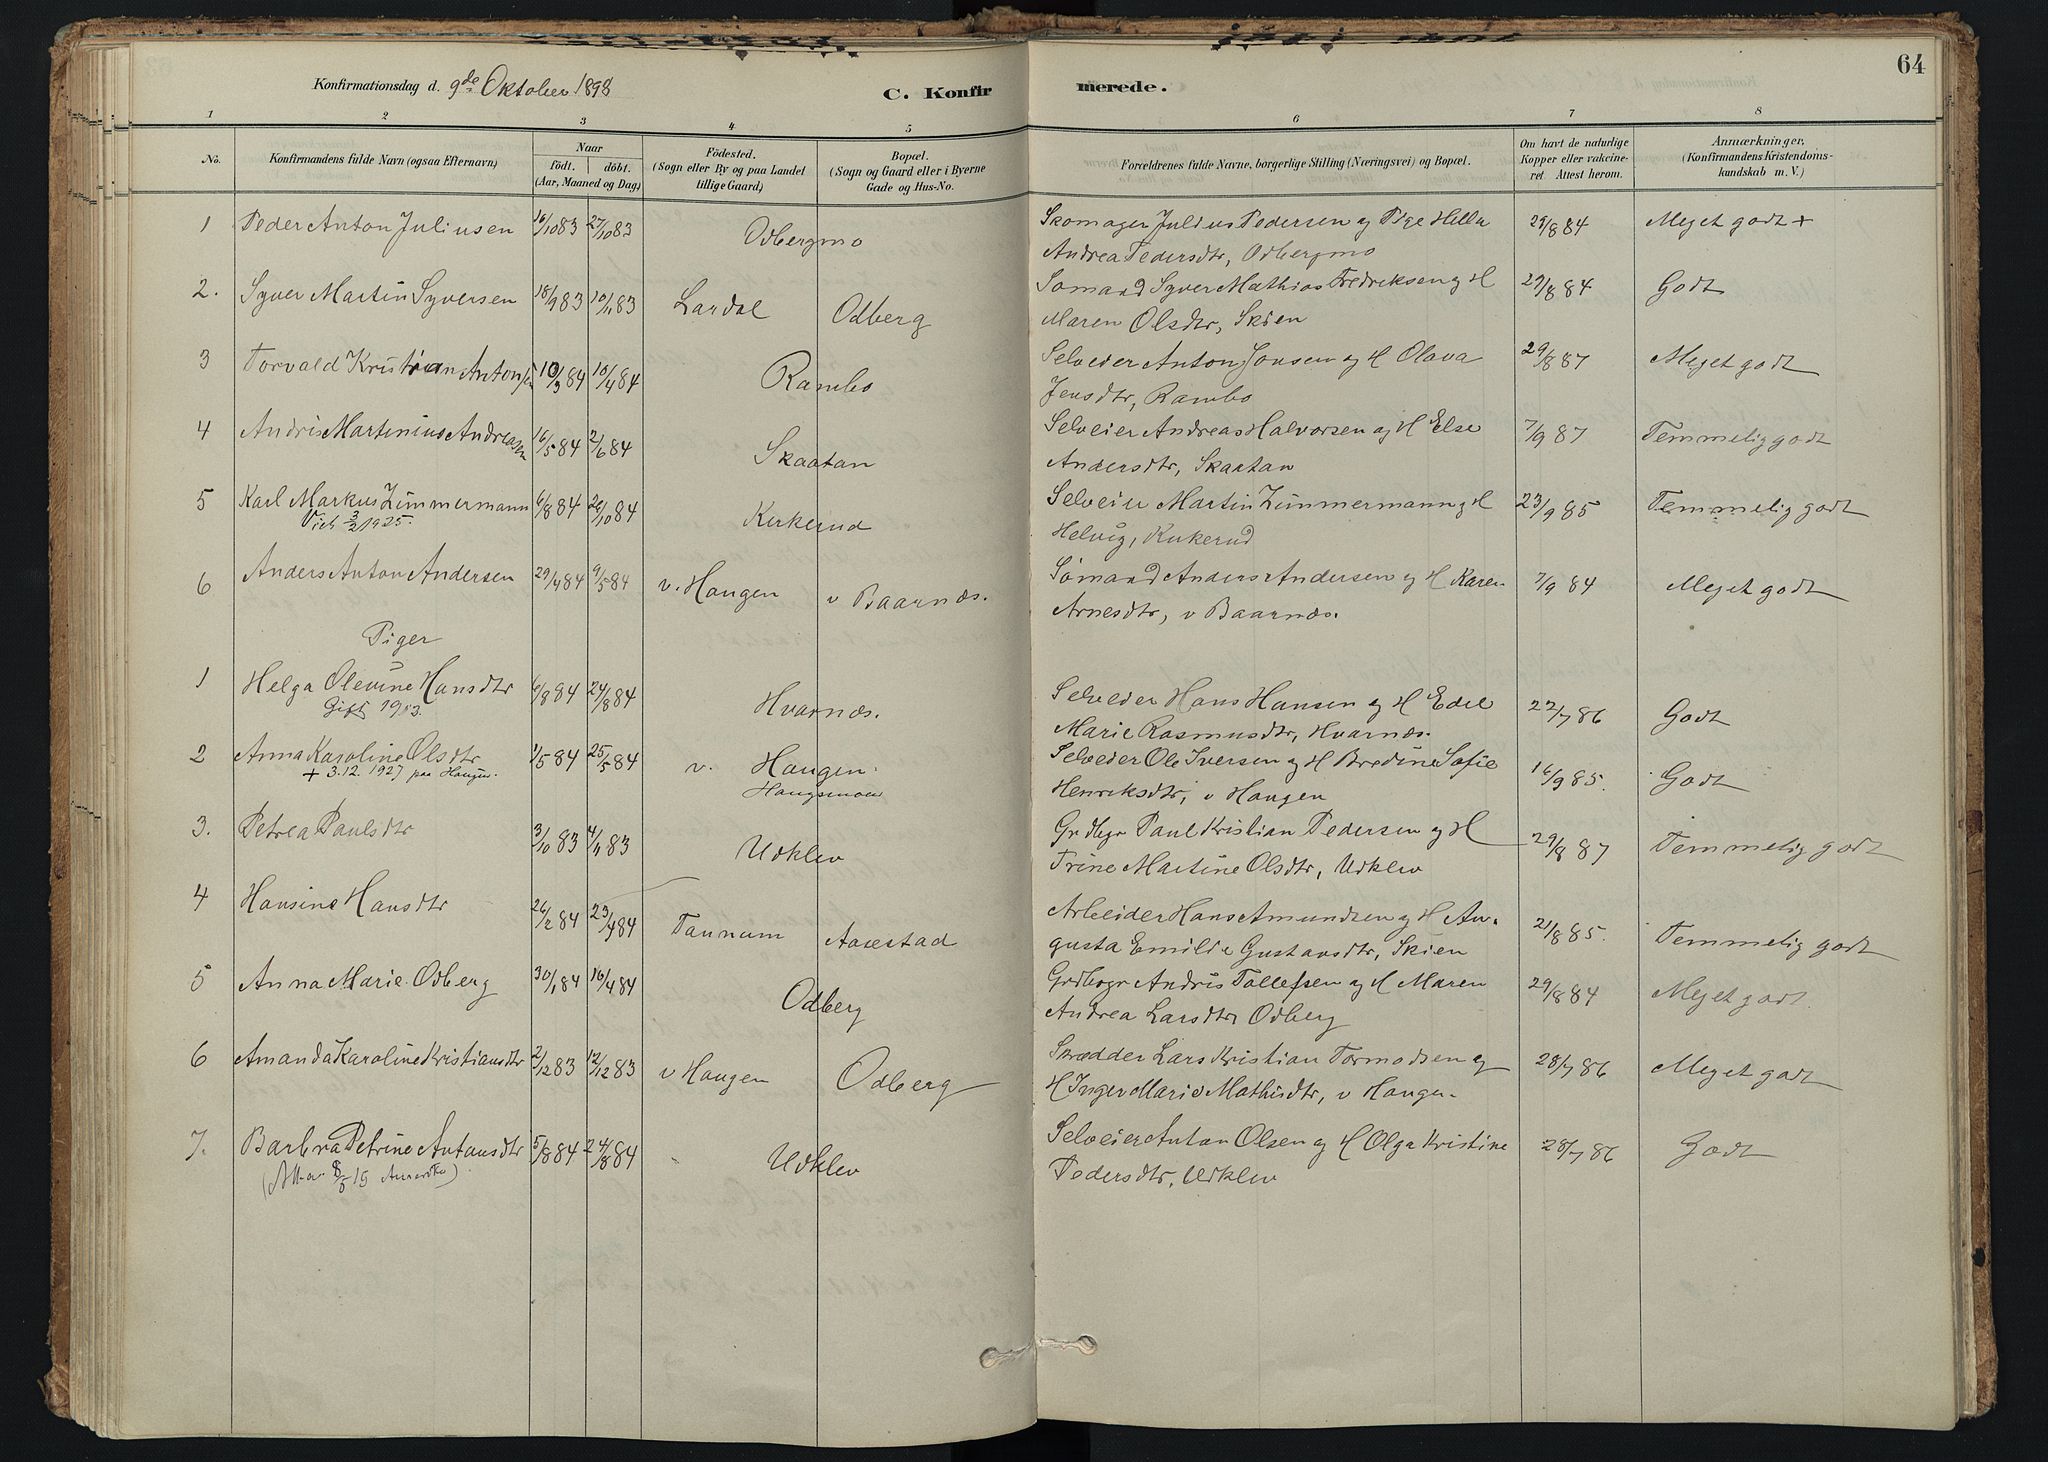 64
Konfirmationsdag d. 9de Oktober 1898
C. Konfirmerede.
1 2 3 4 5 6 7 8
No. Konfirmandens fulde Navn (ogsaa Efternavn). Naar födt. döbt. (Aar, Maaned og Dag) Födested. (Sogn eller By og paa Landet tillige Gaard) Bopæl. (Sogn og Gaard eller i Byerne Gade og Hus-No. Forældrenes fulde Navne, borgerlige Stilling (Næringsvei) og Bopæl. Om havt de naturlige Kopper eller vakcineret. Attest herom. Anmærkninger. (Konfirmandens Kristendomskundskab m. V.)
1 Peder Anton Juliusen 16/10 83 27/10 83 Odbergmo Skomager Julius Pedersen og Pige Hella 29/8 84 Meget godt +
Andrea Pedersdtr, Odbergmo
2. Syver Martin Syversen 18/9 83 10/11 83 Lardal Odberg Sømand Syver Mathias Fredriksen og H 29/8 84 Godt
Maren Olsdtr, Skien
3 Torvald Kristian Antonsen 10/3 84 10/4 84 Rambo Selveier Anton Jonsen og H Olava 29/8 87 Meget godt
Jensdtr, Rambo
4 Andris Martinius Andreasen 16/5 84 2/6 84 Skaatan Selveier Andreas Halvorsen og H Else 7/9 87 Temmelig godt
Andersdtr, Skaatan
5 Karl Markus Zimmermann 6/8 84 26/10 84 Kirkerud Selveier Martin Zimmermann og H 23/9 85 Temmelig godt
Viet 3/2 1925. Helvig, Kirkerud
6 Anders Anton Andersen 29/4 84 9/5 84 v. Haugen v Baarnæs. Sømand Anders Andersen og H Karen 7/9 84 Meget godt
Arnesdtr, v Baarnæs.
Piger
1 Helga Olevine Hansdtr 6/8 84 24/8 84 Hvarnæs. Selveier Hans Hansen og H Edel 22/7 86 Godt
Gift 1913. Marie Rasmusdtr, Hvarnæs.
2 Anna Karoline Olsdtr 1/5 84 25/5 84 v. Haugen. Selveier Ole Iversen og H Bredine Sofie 16/9 85. Godt
+ 3.12.1927 paa Haugen. Haugsmoen Henriksdtr, v Haugen
3. Petrea Paulsdtr 3/10 83 4/11 83 Udklev Grdbgr Paul Kristian Pedersen og H 29/8 87 Temmelig godt
Trine Martine Olsdtr, Udklev
4 Hansine Hansdtr 26/2 84 23/4 84 Tanum Aarestad Arbeider Hans Amundsen og H Au- 21/8 85. Temmelig godt
gusta Emilie Gustavsdtr, Skien
5 Anna Marie Odberg 30/1 84 16/4 84 Odberg Grdbgr Andris Tollefsen og H Maren 29/8 84 Meget godt
Andrea Larsdtr Odberg
6 Amanda Karoline Kristiansdtr 2/12 83 12/12 83 v Haugen Odberg Skrædder Lars Kristian Tormodsen og 28/7 86 Meget godt
H Inger Marie Mathisdtr, v Haugen
7. Barbra Petrine Antonsdtr 5/8 84 24/8 84 Udklev Selveier Anton Olsen og H Olga Kristine 28/7 86 Godt
(Att. 8/5 15 Amerika). Pedersdtr, Udklev